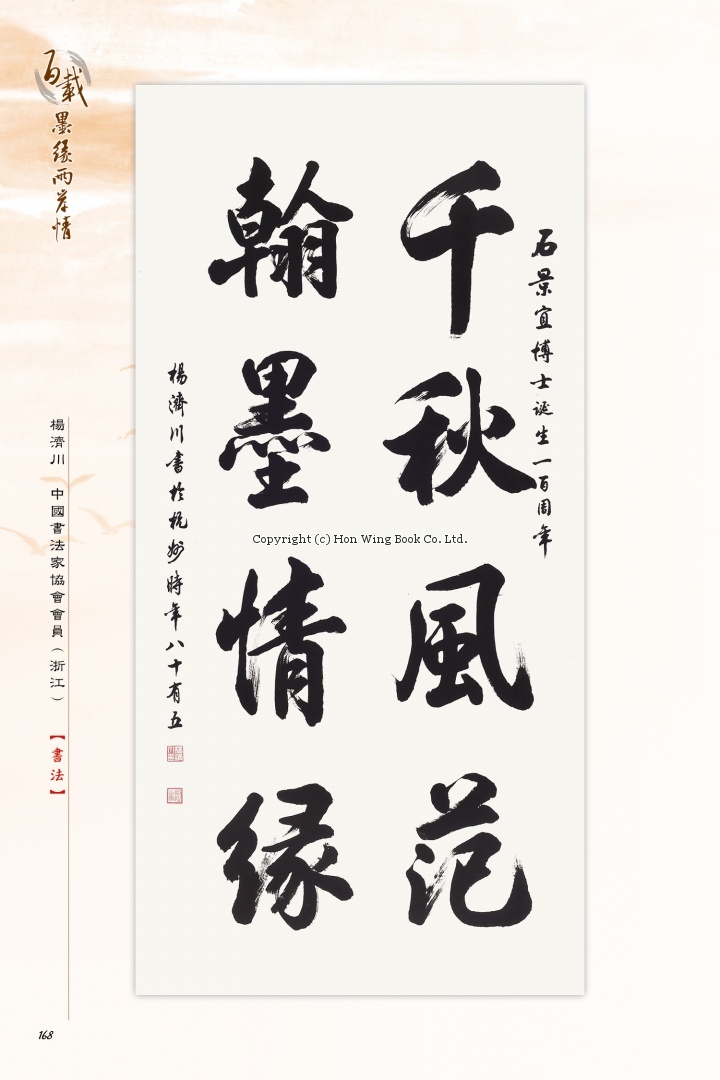 百載墨緣兩岸情
石景宜博士诞生一百周年
千秋風范
翰墨情缘
楊濟川書於杭州時年八十有五
Copyright (c) Hon Wing Book Co. Ltd.
楊濟川 中國書法家協會會員（浙江）
【書法】
168